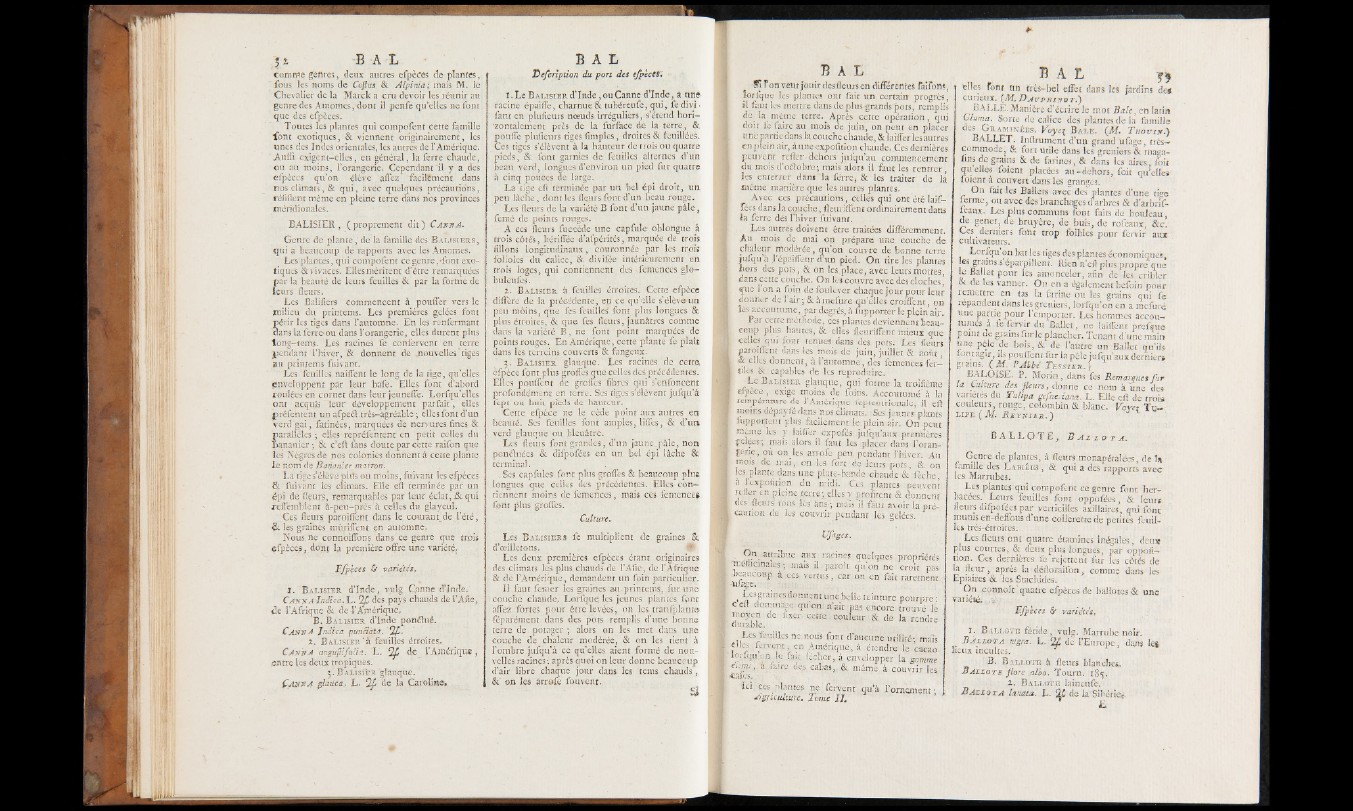 32 BAL
comme genres, deux autres espèces de plantes,
sous les noms de Costus & Alpinia; mais M. le
Chevalier de la Marck a cru devoir les réunir au
genre des Amomes, dont il pense qu'elles ne font
que des espèces.
Toutes les plantes qui composent cette famille
sont exotiques, & viennent originairement, les
unes des Indes orientales, les autres de l'Amérique.
Aussi exigent-elles, en général, la serre chaude,
ou au moins, l'orangerie. Cependant il y a des
espèces qu'on élève assez facilement dans
nos climats, & qui, avec quelques précautions,
résistent même en pleine terre dans nos provinces
méridionales.
BALISIER, (proprement dit) CANNA.
Genre de plante, de la famille des BALISIERS,
qui a beaucoup de rapports avec les Amomes.
Les plantes, qui composent ce genre, sont exo-
tiques & vivaces. Elles méritent d'être remarquées
par la beauté de leurs feuilles & par la forme de
leurs fleurs.
Les Balisiers commencent à pousser vers le
milieu du printems. Les premières gelées font
périr les tiges dans l'automne. En les renfermant
dans la serre ou dans l'orangerie, elles durent plus
long-tems. Les racines se conservent en terre
pendant l'hiver, & donnent de nouvelles tiges
au printems suivant.
Les feuilles naissent le long de la tige, qu'elles
enveloppent par leur base. Elles sont d'abord
roulées en cornet dans leur jeunesse. Lorsqu'elles
ont acquis leur développement parfait, elles
présentent un aspect très-agréable; elles sont d'un
verd gai, satinées, marquées de nervures fines &
paralleles; elles représentent en petit celles du
Bananier; & c'est sans doute par cette raison que
les Nègres de nos colonies donnent à cette plante
le nom de Bananier marron.
La tige s'élève plus ou moins, suivant les espèces
& suivant les climats. Elle est terminée par un
épi de fleurs, remarquables par leur éclat, & qui
ressemblent à-peu-près à celles du glayeul.
Ces fleurs paroissent dans le courant de l'été,
& les graines mûrissent en automne.
Nous ne connoissons dans ce genre que trois
espèces, dont la première offre une variété.
Espèces & variétés.
1. BALISIER d'Inde, vulg Canne d'Inde.
CANNA Indica. L. ♃ des pays chauds de l'Asie,
de l'Afrique & de l'Amérique.
B. BALISIER d'Inde ponctué.
CANNA Indica punctata. ♃.
2. BALISIER à feuilles étroites.
CANNA angustifolia. L. ♃ de l'Amérique,
entre les deux tropiques.
3. BALISIER glauque.
CANNA glauca. L. ♃ de la Caroline.
BAL
Description du port des espèces.
1. Le BALISIER d'Inde, ou Canne d'Inde, a une
racine épaisse, charnue & tubéreuse, qui, se divi-
sant en plusieurs nœuds irréguliers, s'étend hori-
zontalement près de la surface de la terre, &
pousse plusieurs tiges simples, droites & feuillées.
Ces tiges s'élèvent à la hauteur de trois ou quatre
pieds, & sont garnies de feuilles alternes d'un
beau verd, longues d'environ un pied sur quatre
à cinq pouces de large.
La tige est terminée par un bel épi droit, un
peu lâche, dont les fleurs sont d'un beau rouge.
Les fleurs de la variété B sont d'un jaune pâle,
semé de points rouges.
A ces fleurs succède une capsule oblongue à
trois côtés, hérissée d'aspérités, marquée de trois
sillons longitudinaux, couronnée par les trois
folioles du calice, & divisée intérieurement en
trois loges, qui contiennent des semences glo-
buleuses.
2. BALISIER à feuilles étroites. Cette espèce
diffère de la précédente, en ce qu'elle s'élève un
peu moins, que ses feuilles sont plus longues &
plus étroites, & que ses fleurs, jaunâtres comme
dans la variété B, ne sont point marquées de
points rouges. En Amérique, cette plante se plaît
dans les terreins couverts & fangeux.
3. BALISIER glauque. Les racines de cette
espèce sont plus grosses que celles des précédentes.
Elles poussent de grosses fibres qui s'enfoncent
profondément en terre. Ses tiges s'élèvent jusqu'à
sept ou huit pieds de hauteur.
Cette espèce ne le cède point aux autres en
beauté. Ses feuilles sont amples, lisses, & d'un
verd glauque ou bleuâtre.
Les fleurs sont grandes, d'un jaune pâle, non
ponctuées & disposées en un bel épi lâche &
terminal.
Ses capsules sont plus grosses & beaucoup plus
longues que celles des précédentes. Elles con-
tiennent moins de semences, mais ces semences
sont plus grosses.
Culture.
Les BALISIERS se multiplient de graines &
d'œilletons.
Les deux premières espèces étant originaires
des climats les plus chauds de l'Asie, de l'Afrique
& de l'Amérique, demandent un soin particulier.
Il faut semer les graines au printems, sur une
couche chaude. Lorsque les jeunes plantes sont
assez fortes pour être levées, on les transplante
séparément dans des pots remplis d'une bonne
terre de potager; alors on les met dans une
couche de chaleur modérée, & on les tient à
l'ombre jusqu'à ce qu'elles aient formé de nou-
velles racines: après quoi on leur donne beaucoup
d'air libre chaque jour dans les tems chauds,
& on les arrose souvent.
Si
BAL
Si l'on veut jouir des fleurs en différentes saisons,
lorsque les plantes ont fait un certain progrès,
il faut les mettre dans de plus grands pots, remplis
de la même terre. Après cette opération, qui
doit se faire au mois de juin, on peut en placer
une partie dans la couche chaude, & laisser les autres
en plein air, à une exposition chaude. Ces dernières
peuvent rester dehors jusqu'au commencement
du mois d'octobre; mais alors il faut les rentrer,
les enterrer dans la serre, & les traiter de la
même manière que les autres plantes.
Avec ces précautions, celles qui ont été lais-
sées dans la couche, fleurissent ordinairement dans
la serre dès l'hiver suivant.
Les autres doivent être traitées différemment.
Au mois de mai on prépare une couche de
chaleur modérée, qu'on couvre de bonne terre
jusqu'à l'épaisseur d'un pied. On tire les plantes
hors des pots, & on les place, avec leurs mottes,
dans cette couche. On les couvre avec des cloches,
que l'on a soin de soulever chaque jour pour leur
donner de l'air; & à mesure qu'elles croissent, on
les accoutume, par degrés, à supporter le plein air.
Par cette méthode, ces plantes deviennent beau-
coup plus hautes, & elles fleurissent mieux que
celles qui sont tenues dans des pots. Les fleurs
paroissent dans les mois de juin, juillet & août,
& elles donnent, à l'automne, des semences fer-
tiles & capables de les reproduire.
Le BALISIER glauque, qui forme la troisième
espèce, exige moins de soins. Accoutumé à la
température de l'Amérique septentrionale, il est
moins dépaysé dans nos climats. Ses jeunes plants
supportent plus facilement le plein air. On peut
même les y laisser exposés jusqu'aux premières
gelées; mais alors il faut les placer dans l'oran-
gerie, où on les arrose peu pendant l'hiver. Au
mois de mai, on les sort de leurs pots, & on
les plante dans une plate-bande chaude & sèche,
à l'exposition du midi. Ces plantes peuvent
rester en pleine terre; elles y profitent & donnent
des fleurs tous les ans; mais il faut avoir la pré-
caution de les couvrir pendant les gelées.
Usages.
On attribue aux racines quelques propriétés
médicinales; mais il paroît qu'on ne croit pas
beaucoup à ces vertus, car on en fait rarement
usage.
Les graines donnent une belle teinture pourpre:
c'est dommage qu'on n'ait pas encore trouvé le
moyen de fixer cette couleur & de la rendre
durable.
Les feuilles ne nous sont d'aucune utilité; mais
elles servent, en Amérique, à étendre le cacao
lorsqu'on le fait sécher, à envelopper la gomme
élemi, à faire des cabas, & même à couvrir les
cases.
Ici ces plantes ne servent qu'à l'ornement;
Agriculture. Tome II.
BAL 33
elles font un très-bel effet dans les jardins des
curieux. (M. DAUPHINOT.)
BALLE. Manière d'écrire le mot Bale, en latin
Gluma. Sorte de calice des plantes de la famille
des GRAMINÉES. Voyez BALE. (M. THOUIN.)
BALLET. Instrument d'un grand usage, très-
commode, & fort utile dans les greniers & maga-
sins de grains & de farines, & dans les aires, soit
qu'elles soient placées au-dehors, soit qu'elles
soient à couvert dans les granges.
On fait les Ballets avec des plantes d'une tige
ferme, ou avec des branchages d'arbres & d'arbris-
seaux. Les plus communs sont faits de bouleau,
de genet, de bruyère, de buis, de roseaux, &c.
Ces derniers sont trop foibles pour servir aux
cultivateurs.
Lorsqu'on bat les tiges des plantes économiques,
les grains s'éparpillent. Rien n'est plus propre que
le Ballet pour les amonceler, afin de les cribler
& de les vanner. On en a également besoin pour
remettre en tas la farine ou les grains qui se
répandent dans les greniers, lorsqu'on en a mesuré
une partie pour l'emporter. Les hommes accou-
tumés à se servir du Ballet, ne laissent presque
point de grains sur le plancher. Tenant d'une main
une pèle de bois, & de l'autre un Ballet qu'ils
font agir, ils poussent sur la pèle jusqu'aux derniers
grains. (M. l'Abbé TESSIER.)
BALOISE. P. Morin, dans ses Remarques sur
la Culture des fleurs, donne ce nom à une des
variétés du Tulipa gesneriana. L. Elle est de trois
couleurs, rouge, colombin & blanc. Voyez TU-
LIPE (M. REYNIER.)
BALLOTE, BALLOTA.
Genre de plantes, à fleurs monopétalées, de la
famille des LABIÉES, & qui a des rapports avec
les Marrubes.
Les plantes qui composent ce genre sont her-
bacées. Leurs feuilles sont opposées, & leurs
fleurs disposées par verticilles axillaires, qui sont
munis en-dessous d'une collerette de petites feuil-
les très-étroites.
Les fleurs ont quatre étamines inégales, deux
plus courtes, & deux plus longues, par opposi-
tion. Ces dernières se rejettent sur les côtés de
la fleur, après la défloraison, comme dans les
Epiaires & les Stachides.
On connoît quatre espèces de ballotes & une
variété.
Espèces & variétés.
1. BALLOTE fétide, vulg. Marrube noir.
BALLOTA nigra. L. ♃ de l'Europe, dans les
lieux incultes.
B. BALLOTE à fleurs blanches.
BALLOTE flore albo. Tourn. 185.
2. BALLOTE laineuse.
BALLOTA lanata. L. ♃ de la Sibérie.
E